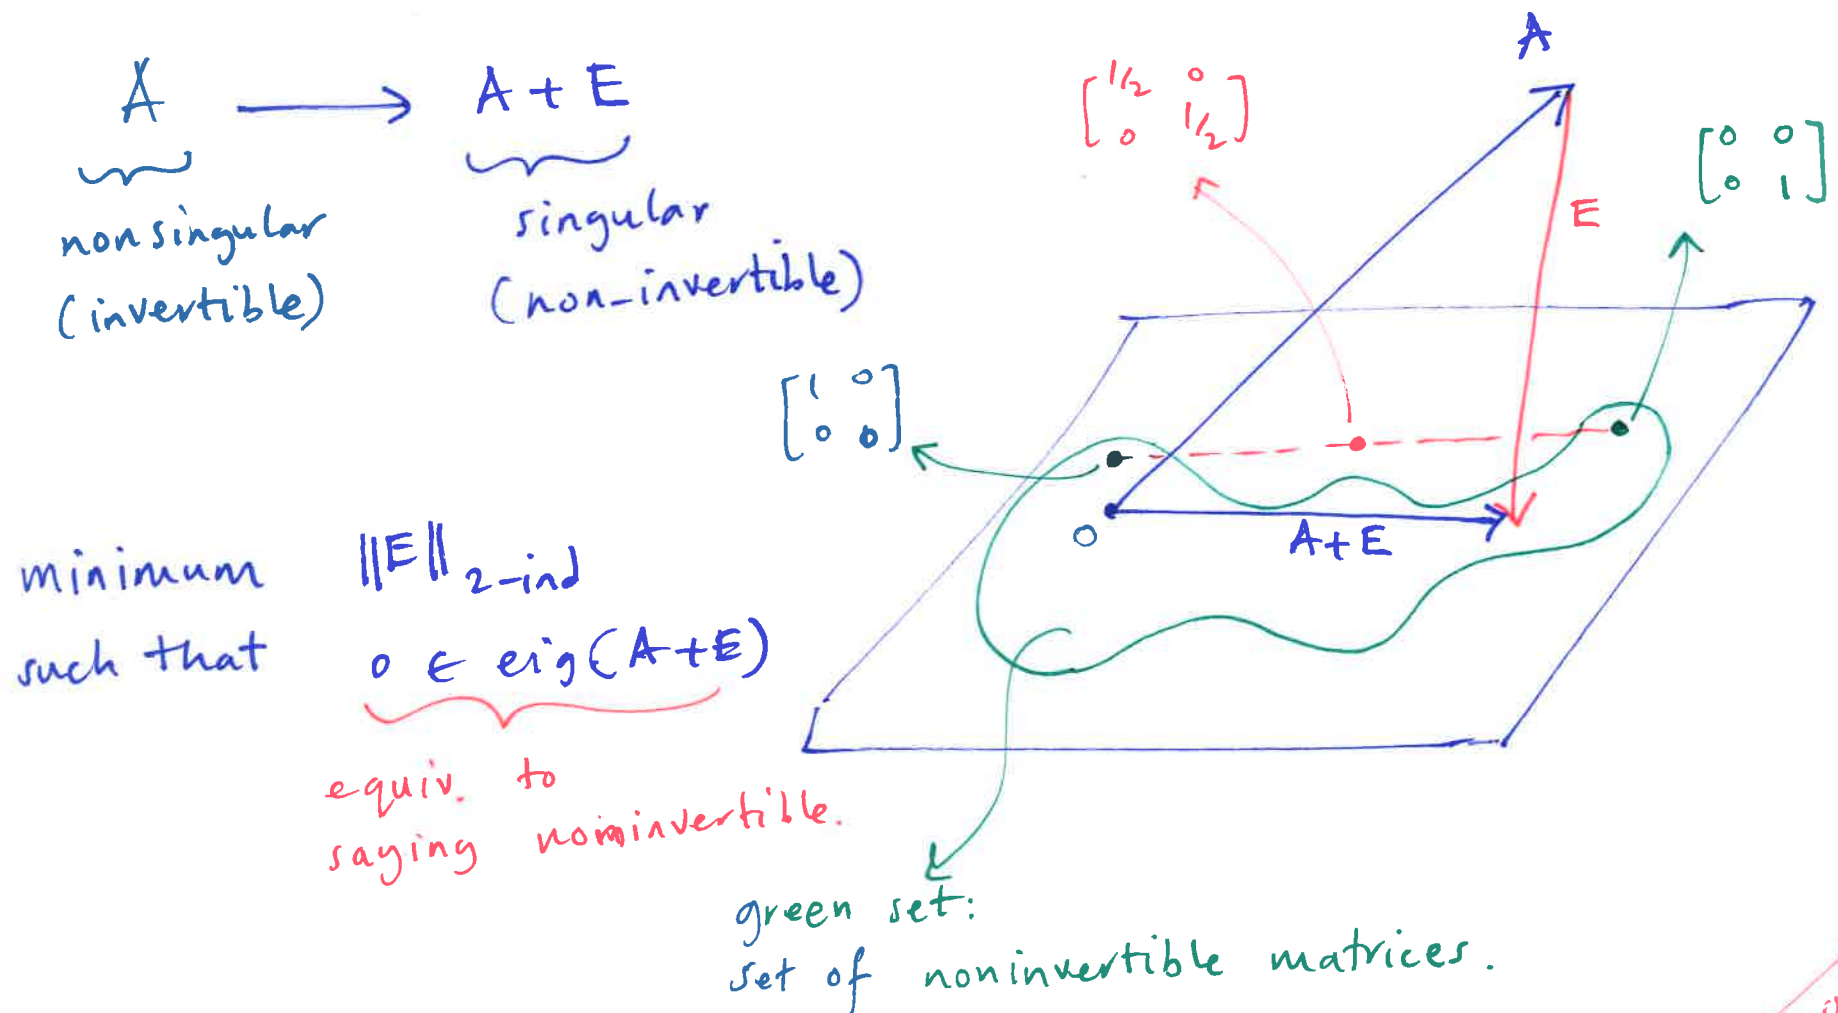 A ⟶ A + E
nonsingular
(invertible)
singular
(non-invertible)
minimum ‖E‖ 2-ind
such that 0 ∈ eig(A+E)
equiv. to
saying noninvertible.
A
[1/2 0
0 1/2]
[0 0
0 1]
E
[1 0
0 0]
0
A+E
green set:
set of noninvertible matrices.